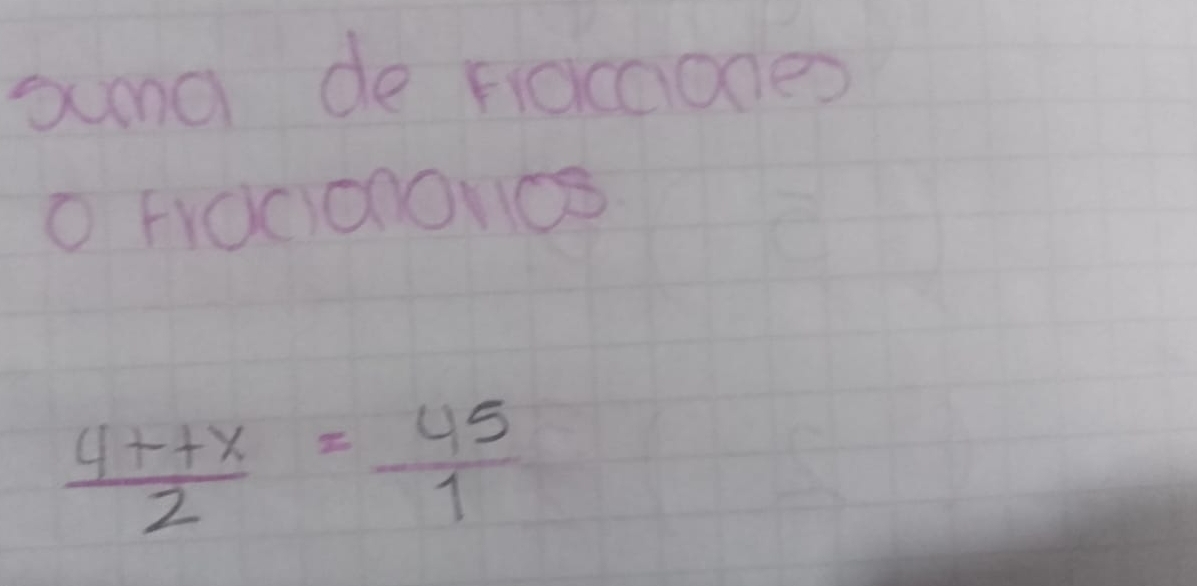 suma de Fracciones
o Fracionarios
4++x = 45
2 1